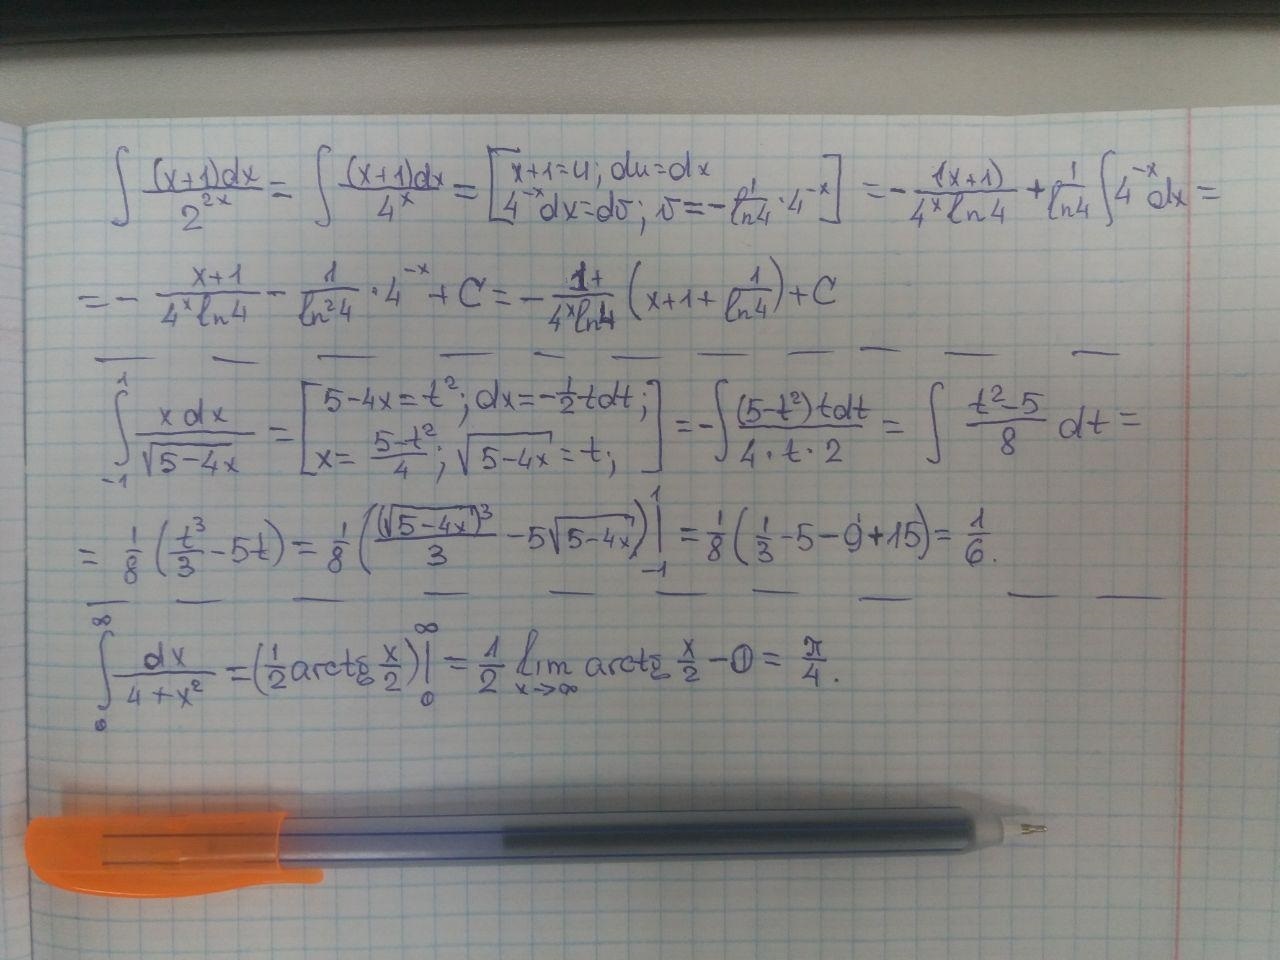 ∫ (x+1)dx / 2^{2x} = ∫ (x+1)dx / 4^x = [x+1=u; du=dx; 4^{-x}dx=dv; v=-1/ln4 · 4^{-x}] = - 1(x+1) / 4^x ln4 + 1/ln4 ∫ 4^{-x} dx =
= - x+1 / 4^x ln4 - 1/ln²4 · 4^{-x} + C = - 1 / 4^x ln4 (x+1+ 1/ln4) + C
∫_{-1}^{1} x dx / √(5-4x) = [5-4x=t²; dx=-1/2 t dt; x= 5-t² / 4; √(5-4x) = t;] = -∫ (5-t²) t dt / 4·t·2 = ∫ t²-5 / 8 dt =
= 1/8 (t³/3 - 5t) = 1/8 ((√(5-4x))³ / 3 - 5√(5-4x)) |_{-1}^{1} = 1/8 (1/3 - 5 - 9 + 15) = 1/6.
∫_0^∞ dx / 4+x² = (1/2 arctg x/2) |_0^∞ = 1/2 lim_{x→∞} arctg x/2 - 0 = π/4.